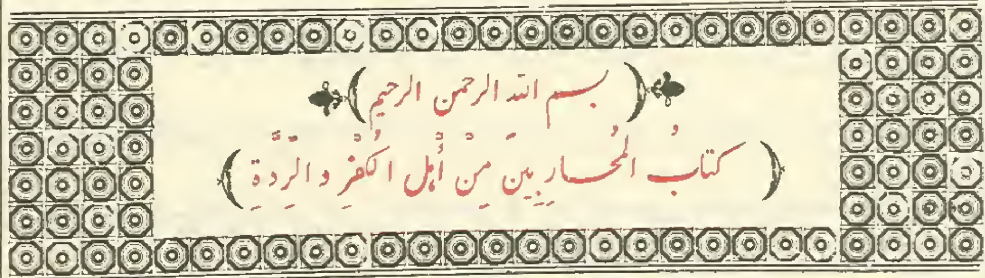 ﴿ بسم الله الرحمن الرحيم ﴾
﴿ كتابُ المُحاربِينَ مِنْ أَهلِ الكُفْرِ والرِّدَّةِ ﴾